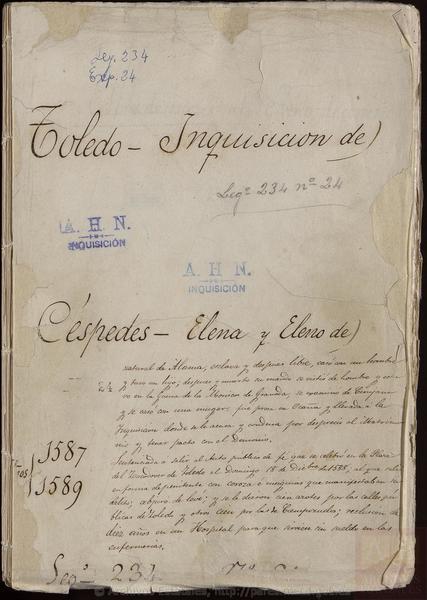 Leg. 234
Exp. 24
Toledo - Inquisicion de)
Legº 234 nº 24
A. H. N.
INQUISICIÓN
A. H. N.
INQUISICIÓN
Céspedes - Elena y Eleno de)
natural de Alama, esclava y despues libre, casó con un hombre
y tuvo un hijo; despues y muerto su marido se vistió de hombre y estu-
vo en la guerra de los Moriscos de Granada, se examinó de Cirujano
y se casó con una muger; fue presa en Ocaña y llevada á la
Inquisicion donde se le acusa y condena por desprecio al Matrimo-
nio y tener pacto con el Demonio.
Sentenciada a salir al Auto publico de fe que se celebró en la Plaza
del Zocodover de Toledo el Domingo 18 de Diciembre de 1588, al que salió
en forma de penitente con coroza é insignias que manifestaban su
delito; abjuró de levi; y se le dieron cien azotes por las calles pú-
blicas de Toledo y otros cien por las de Cienpozuelos; reclusion de
diez años en un Hospital para que sirviese sin sueldo en las
enfermerias.
1587
1589
Legº 234